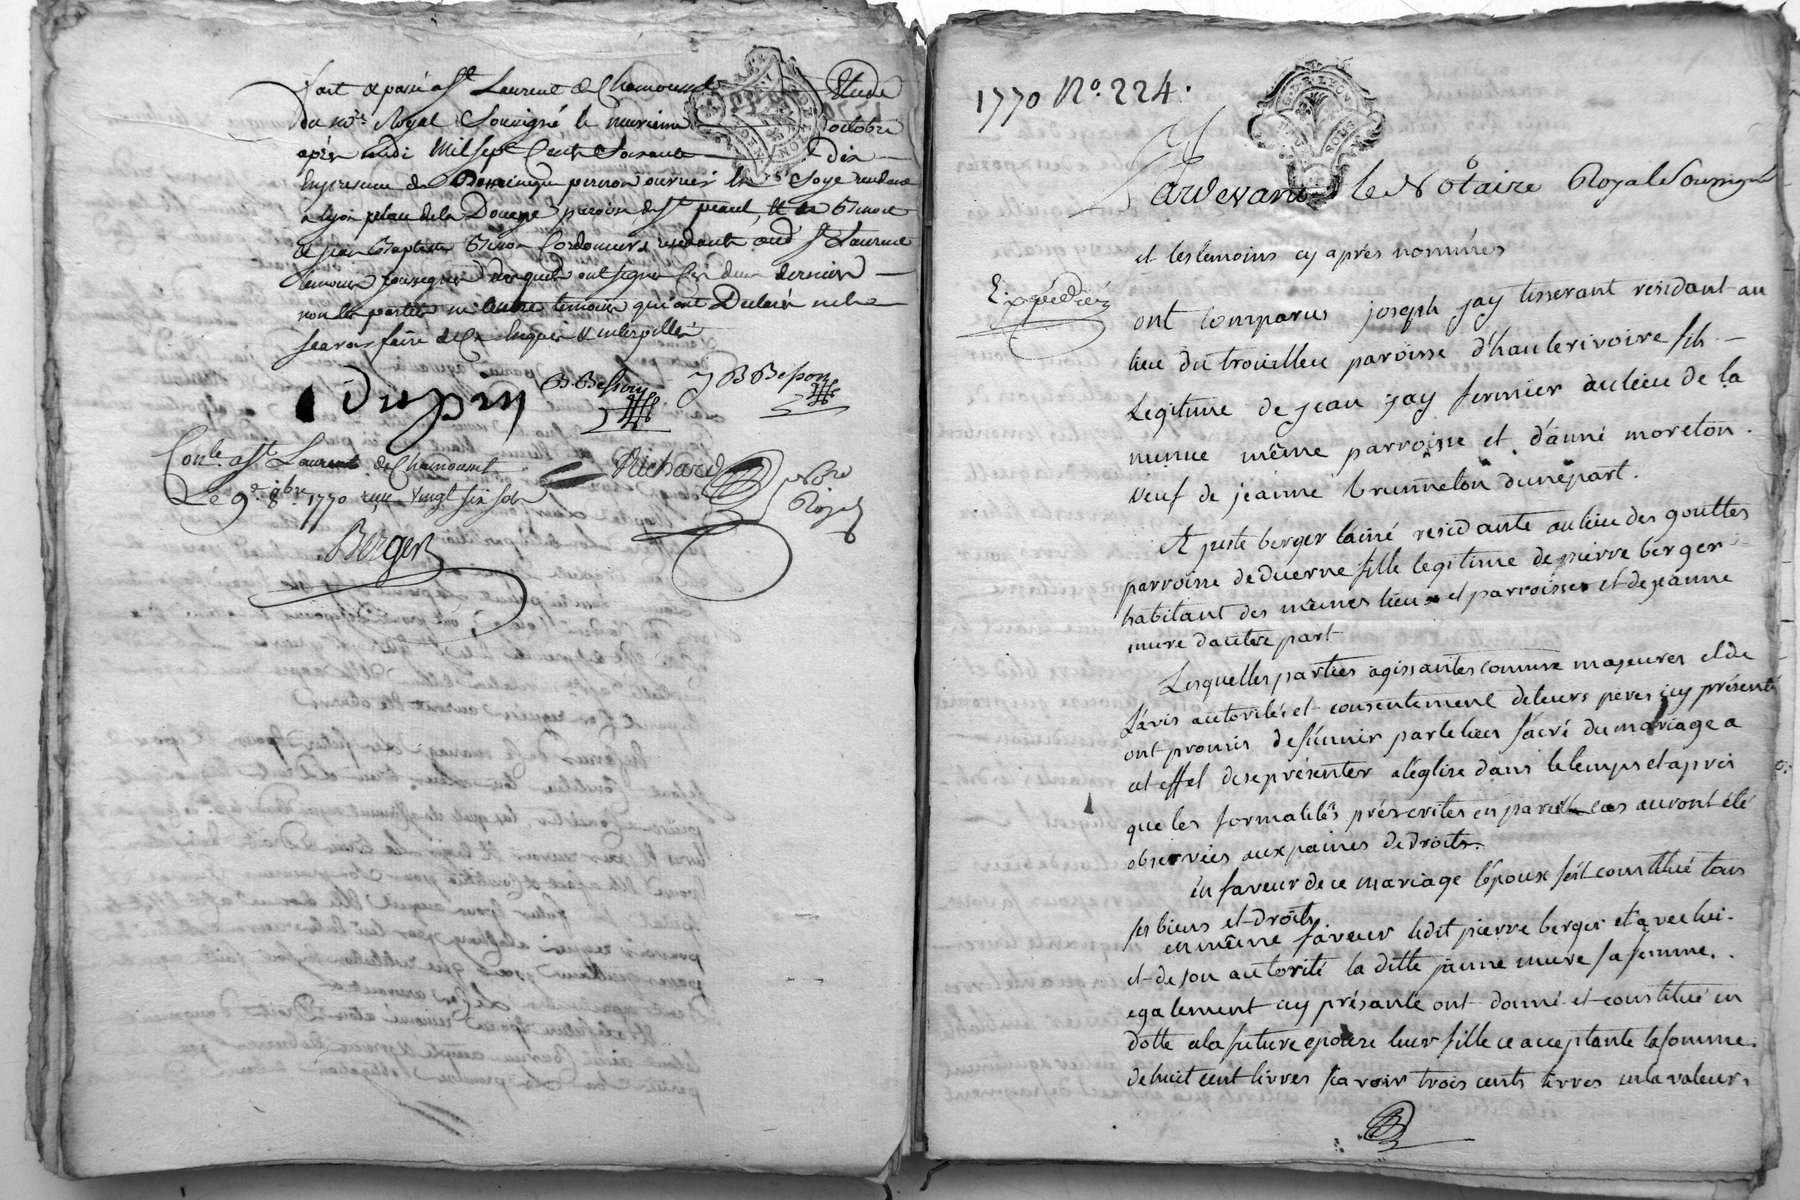 fait & passé a St Laurent de Chamousset Etude
du nore Royal Soussigné le neuvieme octobre
après midi Mil sept Cents Soixante dix
En presence de Dominique perron ouvrier en Soye residant
a lyon place de la Douene paroisse de St paul, Benoit
& jean Baptiste Besson Cordonniers residants aud St Laurent
temoins soussignés desquels ont signé Ces deux derniers
non les parties ni l'autre temoin qui ont Declaré ne le
scavoir faire de Ce Enquis & interpellés
Dupin
B Besson
J B Besson
Conlé a St Laurent de Chamousset
Le 9e 8bre 1770 reçu vingt six sols
Richard
nore
Royal
Berger
1770 No. 224.
G. D. LYON
SOLS
Pardevant le Notaire Royal Soussigné
et les temoins cy après nommés
Expediée
ont comparus joseph jay tisserant residant au
lieu du trouilleu paroisse d'hauterivoire fils
Legitime de jean jay fermier au lieu de la
menue même parroisse et d'anne moreton
veuf de jeanne brunneton d'une part.
Et juste berger lainé residante au lieu des gouttes
parroisse de duerne fille legitime de pierre berger
habitant des mêmes lieux et parroisses et de jeanne
mure dautre part
Lesquelles parties agissantes comme majeures et de
l'avis autorités et consentement de leurs peres icy présents
ont promis de s'unir par le lien sacré du mariage a
cet effet de se présenter a léglise dans le temps et aprés
que les formalités préscrites en pareille cas auront été
observées aux paines de droits.
en faveur de ce mariage lépoux s'est constitué tous
ses biens et droits.
en même faveur ledit pierre berger et avec lui
et de son autorité la ditte jeanne mure sa femme.
egalement icy présante ont donné et constitué en
dotte a la future epouze leur fille ce acceptante la somme
de huit cent livres scavoir trois cents livres en la valeur